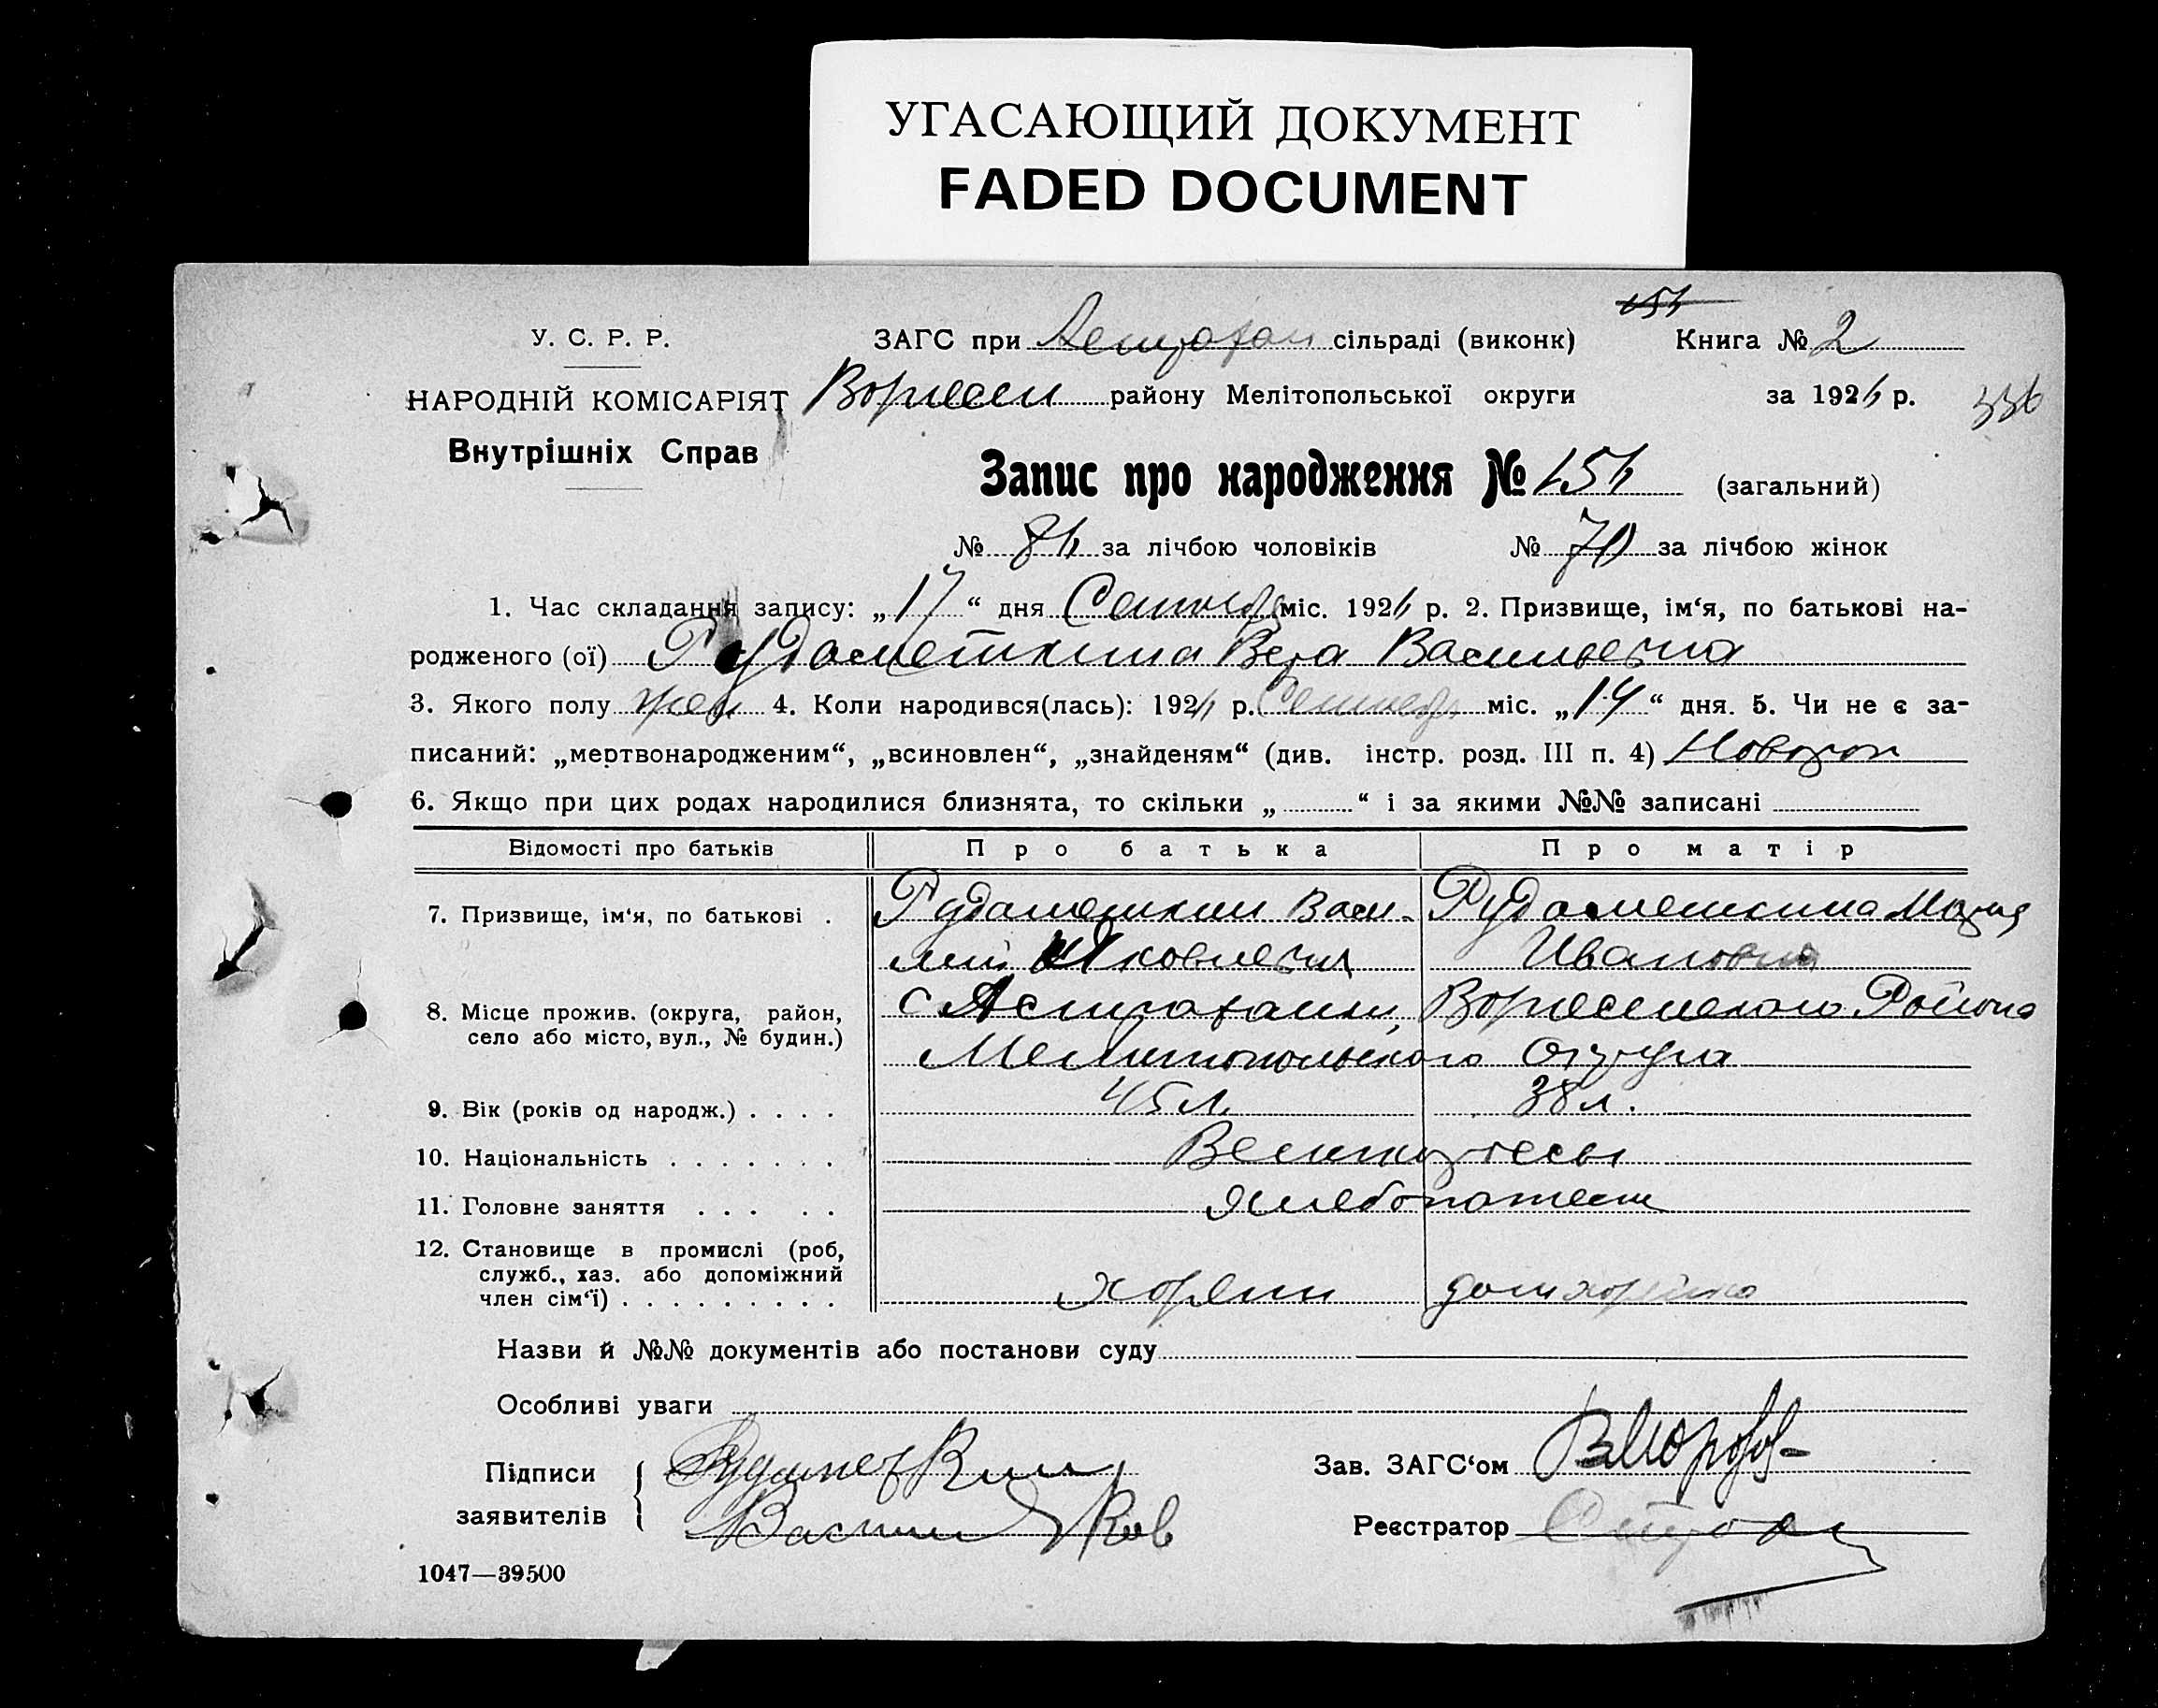 УГАСАЮЩИЙ ДОКУМЕНТ
FADED DOCUMENT
У. С. Р. Р.
НАРОДНІЙ КОМІСАРІЯТ
Внутрішніх Справ
ЗАГС при Астрахан сільраді (виконк)
районy Мелітопольської округи
154
Книга № 2
за 1926 р.
336
Запис про народження № 154 (загальний)
№ 84 за лічбою чоловіків № 70 за лічбою жінок
1. Час складання запису: „ 17 “ дня Сентябр міс. 1926 р. 2. Призвище, ім‘я, по батькові на-
родженого (ої) Рудометкина Вера Васильевна
3. Якого полу жен 4. Коли народився(лась): 1926 р. Сентябр міс. „ 14 “ дня. 5. Чи не є за-
писаний: „мертвонародженим“, „всиновлен“, „знайденям“ (див. інстр. розд. III п. 4) Новорож
6. Якщо при цих родах народилися близнята, то скільки „ “ і за якими №№ записані
Відомості про батьків Про батька Про матір
7. Призвище, ім‘я, по батькові . Рудометкин Васи- Рудометкина Мария
лий Яковлевич Ивановна
8. Місце прожив. (округа, район, село або місто, вул., № будин.) с Астраханки, Района
Мелитопольского Округа
9. Вік (років од народж.) . . . . 45 л. 38 л.
10. Національність . . . . . . . Великороссы
11. Головне заняття . . . . . хлебопашец
12. Становище в промислі (роб, служб., хаз. або допоміжний член сім‘ї) . . . . . . . . . хозяин домхозяйка
Назви й №№ документів або постанови суду
Особливі уваги
Підписи заявителів { Рудометкин
Васили Яков
Зав. ЗАГС‘ом
Реєстратор
1047—39500